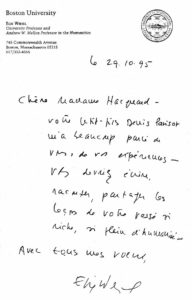 Boston University
ELIE WIESEL
University Professor and
Andrew W. Mellon Professor in the Humanities
745 Commonwealth Avenue
Boston, Massachusetts 02215
617/353-4566
le 29.10.95
Chère Madame
votre petit-fils Denis
m'a beaucoup parlé de
vous, de vos expériences —
vous devriez écrire,
raconter, partager les
leçons de votre passé si
riche, si plein d'humanité.
Avec tous mes voeux,
Elie Wiesel